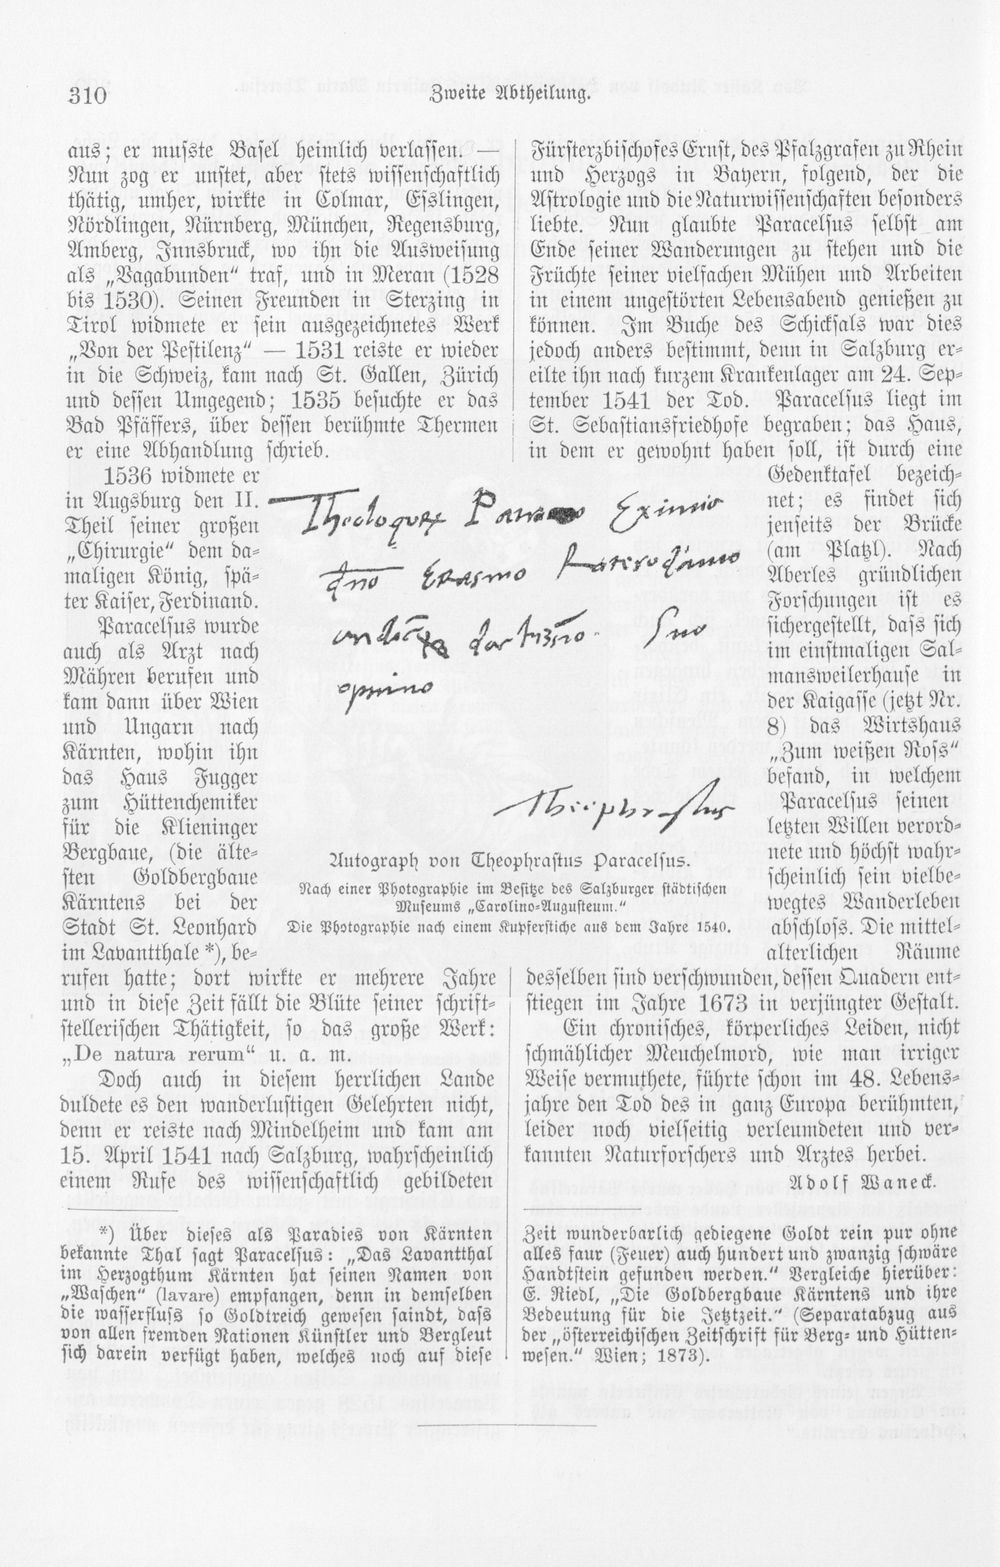 310
Zweite Abtheilung.
aus; er musste Basel heimlich verlassen. —
Nun zog er unstet, aber stets wissenschaftlich
thätig, umher, wirkte in Colmar, Esslingen,
Nördlingen, Nürnberg, München, Regensburg,
Amberg, Innsbruck, wo ihn die Ausweisung
als „Vagabunden“ traf, und in Meran (1528
bis 1530). Seinen Freunden in Sterzing in
Tirol widmete er sein ausgezeichnetes Werk
„Von der Pestilenz“ — 1531 reiste er wieder
in die Schweiz, kam nach St. Gallen, Zürich
und dessen Umgegend; 1535 besuchte er das
Bad Pfäffers, über dessen berühmte Thermen
er eine Abhandlung schrieb.
1536 widmete er
in Augsburg den II.
Theil seiner großen
„Chirurgie“ dem da-
maligen König, spä-
ter Kaiser, Ferdinand.
Paracelsus wurde
auch als Arzt nach
Mähren berufen und
kam dann über Wien
und Ungarn nach
Kärnten, wohin ihn
das Haus Fugger
zum Hüttenchemiker
für die Klieninger
Bergbaue, (die älte-
sten Goldbergbaue
Kärntens bei der
Stadt St. Leonhard
im Lavantthale *), be-
rufen hatte; dort wirkte er mehrere Jahre
und in diese Zeit fällt die Blüte seiner schrift-
stellerischen Thätigkeit, so das große Werk:
„De natura rerum“ u. a. m.
Doch auch in diesem herrlichen Lande
duldete es den wanderlustigen Gelehrten nicht,
denn er reiste nach Mindelheim und kam am
15. April 1541 nach Salzburg, wahrscheinlich
einem Rufe des wissenschaftlich gebildeten
Eximio
Erasmo
Theophrastus
Autograph von Theophrastus Paracelsus.
Nach einer Photographie im Besitze des Salzburger städtischen
Museums „Carolino-Augusteum.“
Die Photographie nach einem Kupferstiche aus dem Jahre 1540.
Fürsterzbischofes Ernst, des Pfalzgrafen zu Rhein
und Herzogs in Bayern, folgend, der die
Astrologie und die Naturwissenschaften besonders
liebte. Nun glaubte Paracelsus selbst am
Ende seiner Wanderungen zu stehen und die
Früchte seiner vielfachen Mühen und Arbeiten
in einem ungestörten Lebensabend genießen zu
können. Im Buche des Schicksals war dies
jedoch anders bestimmt, denn in Salzburg er-
eilte ihn nach kurzem Krankenlager am 24. Sep-
tember 1541 der Tod. Paracelsus liegt im
St. Sebastiansfriedhofe begraben; das Haus,
in dem er gewohnt haben soll, ist durch eine
Gedenktafel bezeich-
net; es findet sich
jenseits der Brücke
(am Platzl). Nach
Aberles gründlichen
Forschungen ist es
sichergestellt, dass sich
im einstmaligen Sal-
mansweilerhause in
der Kaigasse (jetzt Nr.
8) das Wirtshaus
„Zum weißen Ross“
befand, in welchem
Paracelsus seinen
letzten Willen verord-
nete und höchst wahr-
scheinlich sein vielbe-
wegtes Wanderleben
abschloss. Die mittel-
alterlichen Räume
desselben sind verschwunden, dessen Quadern ent-
stiegen im Jahre 1673 in verjüngter Gestalt.
Ein chronisches, körperliches Leiden, nicht
schmählicher Meuchelmord, wie man irriger
Weise vermuthete, führte schon im 48. Lebens-
jahre den Tod des in ganz Europa berühmten,
leider noch vielseitig verleumdeten und ver-
kannten Naturforschers und Arztes herbei.
Adolf Waneck.
*) Über dieses als Paradies von Kärnten
bekannte Thal sagt Paracelsus: „Das Lavantthal
im Herzogthum Kärnten hat seinen Namen von
„Waschen“ (lavare) empfangen, denn in demselben
die wasserfluss so Goldtreich gewesen saindt, dass
von allen fremden Nationen Künstler und Bergleut
sich darein verfügt haben, welches noch auf diese
Zeit wunderbarlich gediegene Goldt rein pur ohne
alles faur (Feuer) auch hundert und zwanzig schwäre
Handtstein gefunden werden.“ Vergleiche hierüber:
E. Riedl, „Die Goldbergbaue Kärntens und ihre
Bedeutung für die Jetztzeit.“ (Separatabzug aus
der „österreichischen Zeitschrift für Berg- und Hütten-
wesen.“ Wien; 1873).